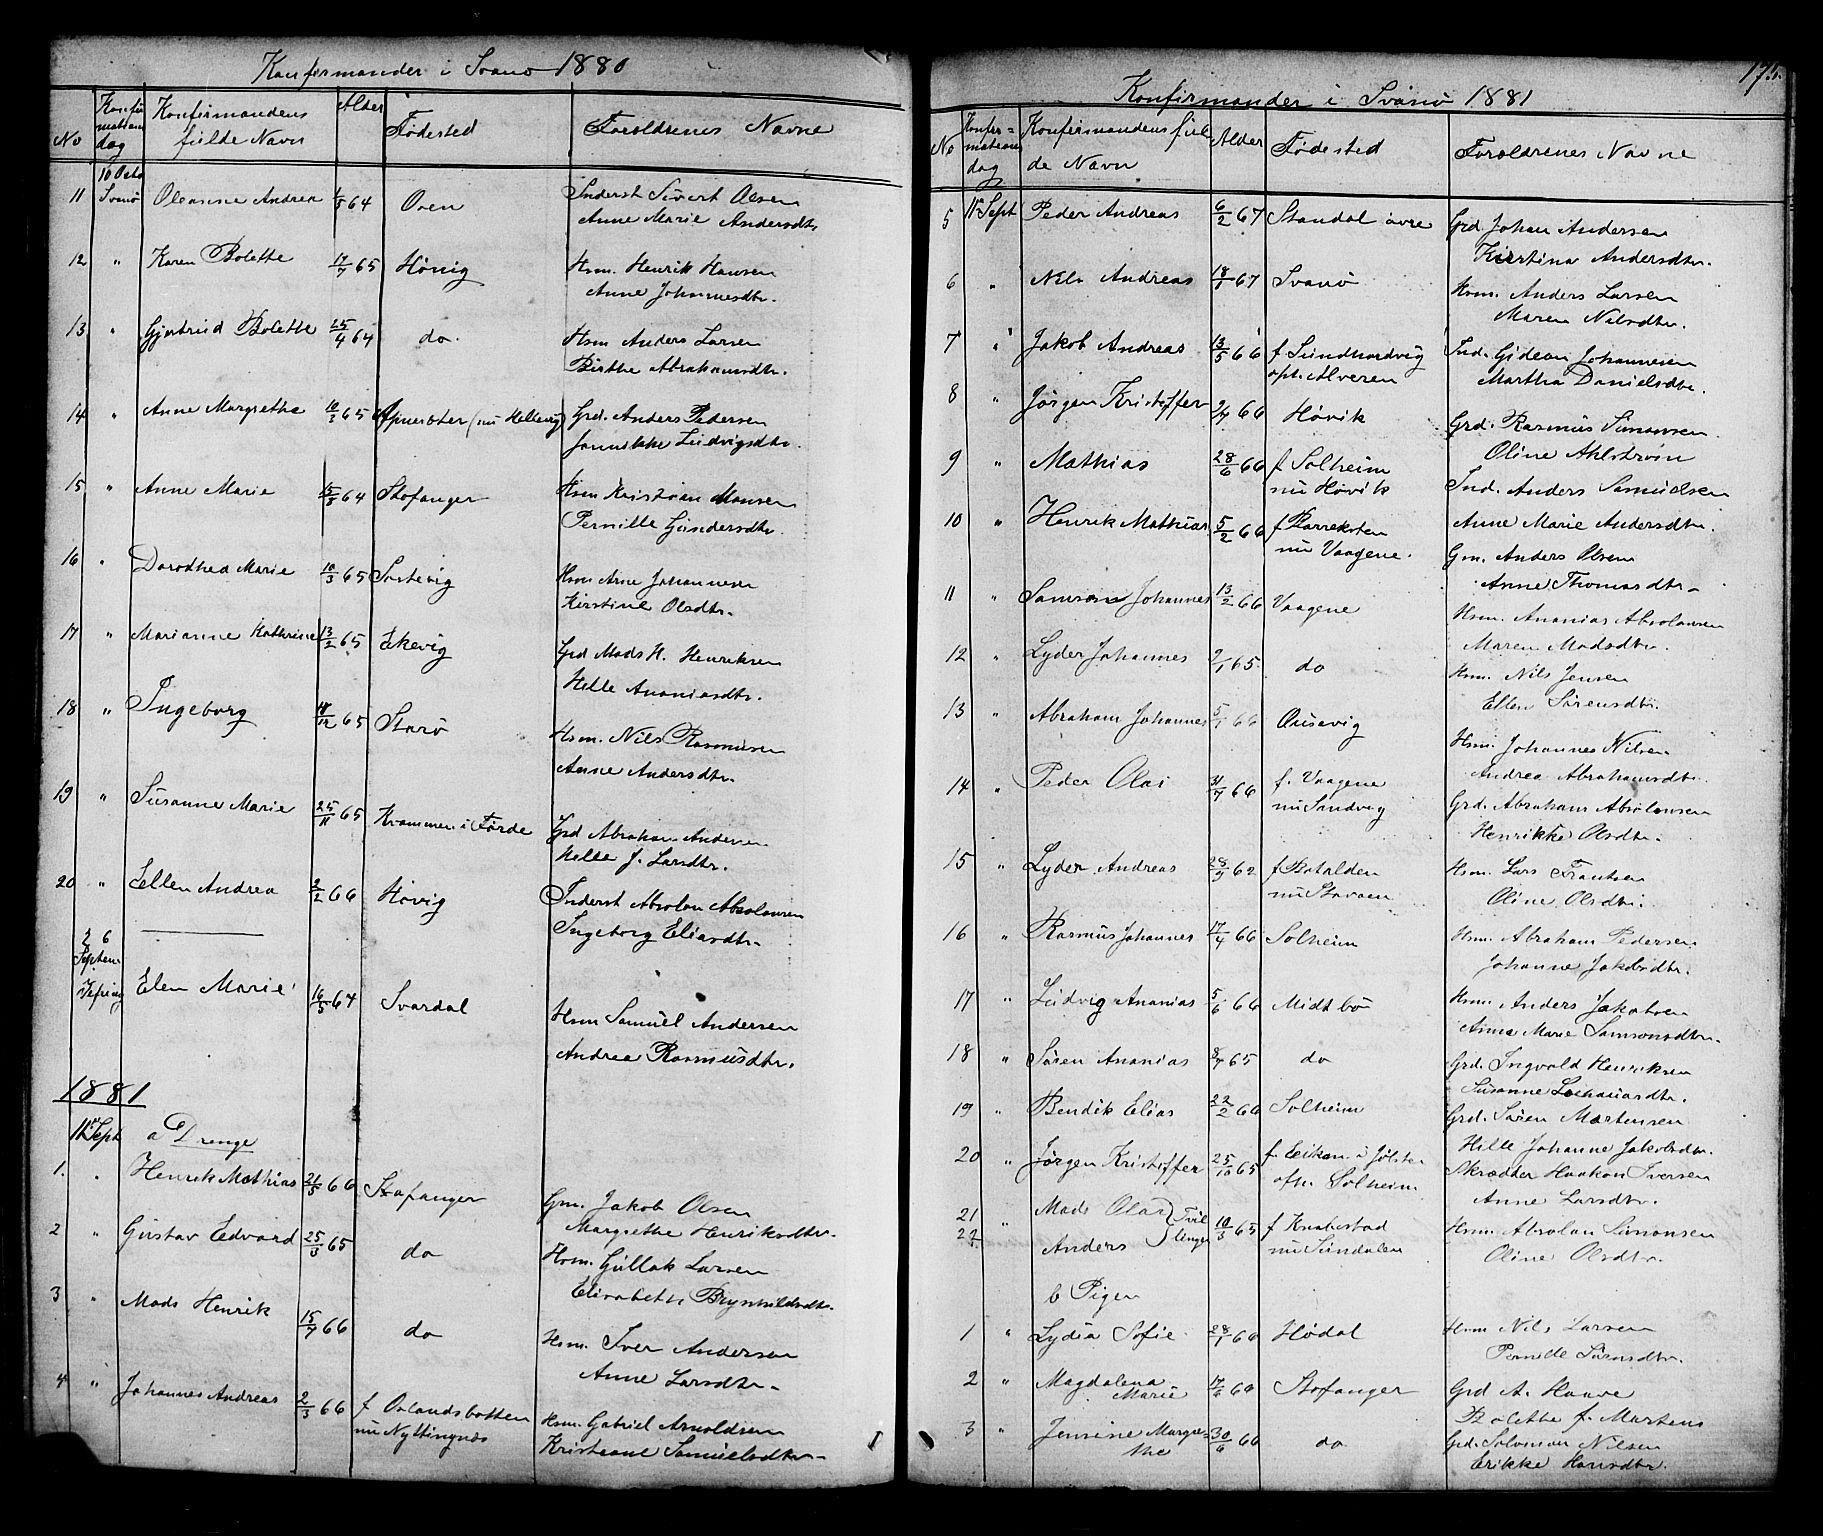 Konfirmander i Svanø 1880
No
Konfirmations dag
Konfirmandens fulde Navn
Alder
Fødested
Foreldrenes Navne
10 Octo
11 Svanø Oleanne Andrea 64 Oven Inderst Sivert Olsen
Anne Marie Andersdtr
12 " Karen Bolette 17/7 65 Høvig Hsm. Henrik Hansen
Anne Johannesdtr.
13 " Gjertrud Bolette 25/4 64 do. Hsm Anders Larsen
Birthe Abrahamsdtr.
14 " Anne Margrethe 65 (nu Hellevig) Grd. Anders Pedersen
Jannikke Ludvigsdtr.
15 " Anne Marie 64 Stofanger Hsm Kristian Monsen
Pernille Gundersdtr.
16 " Dorothea Marie 10/3 65 Hsm Arne Johannesen
Kirstine Olsdtr.
17 " Marianne Kathrine 13/2 65 Ekevig Grd Mads H. Henriksen
Helle Ananiasdtr.
18 " Ingeborg 65 Starø Hsm. Nils Rasmusen
Anne Andersdtr.
19 " Susanne Marie 25/11 65 Krammer i Førde Grd Abraham Andersen
Helle J. Larsdtr.
20 " Ellen Andrea 2/2 66 Høvig Inderst Absolon Absolonsen
Ingeborg Eliasdtr.
Septem
Elen Marie 16/5 64 Svardal Hsm Samuel Andersen
Andrea Rasmusdtr.
1881
11 Sept a Drenge
1. " Henrik Mathias 21/5 66 Stafanger Gm. Jakob Olsen
Margrethe Henriksdtr.
2 " Gustav Edvard 25/3 65 do Hsm. Gullak Larsen
Elisabeth Brynhildsdtr.
3 " Mads Henrik 15/7 66 do Hsm. Iver Andersen
Anne Larsdtr.
4 " Johannes Andreas 2/3 66 f Oslandsbotten
nu Nyttingnes Hsm. Gabriel Arnoldsen
Kristiane Samuelsdtr.
Konfirmander i Svanø 1881
No
Konfirmations dag
Konfirmandens fulde Navn
Alder
Fødested
Foreldrenes Navne
5 11 Sept Peder Andreas 6/2 67 Standal øvre Grd. Johan Andersen
Kirstina Andersdtr.
6 " Nils Andreas 18/1 67 Svanø Hsm. Anders Larsen
Maren Nilsdtr.
7 " Jakob Andreas 13/5 66 f Sundhordvig
opt. Alveren Ind. Gideon Johannesen
Martha Danielsdtr.
8 Jørgen Kristoffer 66 Høvik Grd. Rasmus Simonsen
Oline Ahlstrøm
9 " Mathias 28/6 66 f Solheim
nu Høvik Ind. Anders Samuelsen
Anne Marie Andersdtr.
10 " Henrik Mathias 5/2 66 f
nu Vaagene. Gm. Anders Olsen
Anne Thomasdtr.
11 " Samson Johannes 13/2 66 Vaagene Hsm. Ananias Absolonsen
Maren Madsdtr.
12 " Lyder Johannes 65 do Hsm. Nils Jensen
Ellen Sørensdtr.
13 " Abraham Johannes 5/1 66 Ousevig Hsm. Johannes Nilsen
Andrea Abrahamsdtr.
14 " Peder Olai 31/7 66 f. Vaagene
nu Sandvig Grd. Abraham Absolonsen
Henrikke Olsdtr.
15 " Lyder Andreas 28/9 62 f Batalden
nu Stavøen Hsm. Lars Frantsen
Oline Olsdtr.
16 " Rasmus Johannes 17/4 66 Solheim Hsm. Abraham Pedersen
Johanne Jakobsdtr.
17 " Ludvig Ananias 5/6 66 Midtbø Hsm. Anders Jakobsen
Anna Marie Samsonsdtr.
18 " Søren Ananias 65 do Grd. Ingvald Henriksen
Susanne Zachariasdtr.
19 " Bendik Elias 22/2 66 Solheim Grd. Søren Mortensen
Hille Johanne Jakobsdtr.
20 " Jørgen Kristoffer 25/10 65 f. Eikaas i Jølster
oph. Solheim Skrædder Haakon Iversen
Anne Larsdtr.
21 " Mads Olai
22 Anders } Tvillinger 10/3 65 f Knabestad
nu Sundalen Hsm. Absolon Simonsen
Oline Olsdtr.
b Piger
1 " Lydia Sofie 28/1 66 Hødal Hsm Nils Larsen
Pernille Sørensdtr.
2 " Magdalena
Marie 17/6 66 Stofanger Grd A. Haave
Bolette f. Martens
3 " Jensine Margrethe 30/6 66 do Grd. Salomon Nilsen
Erikke Hansdtr.